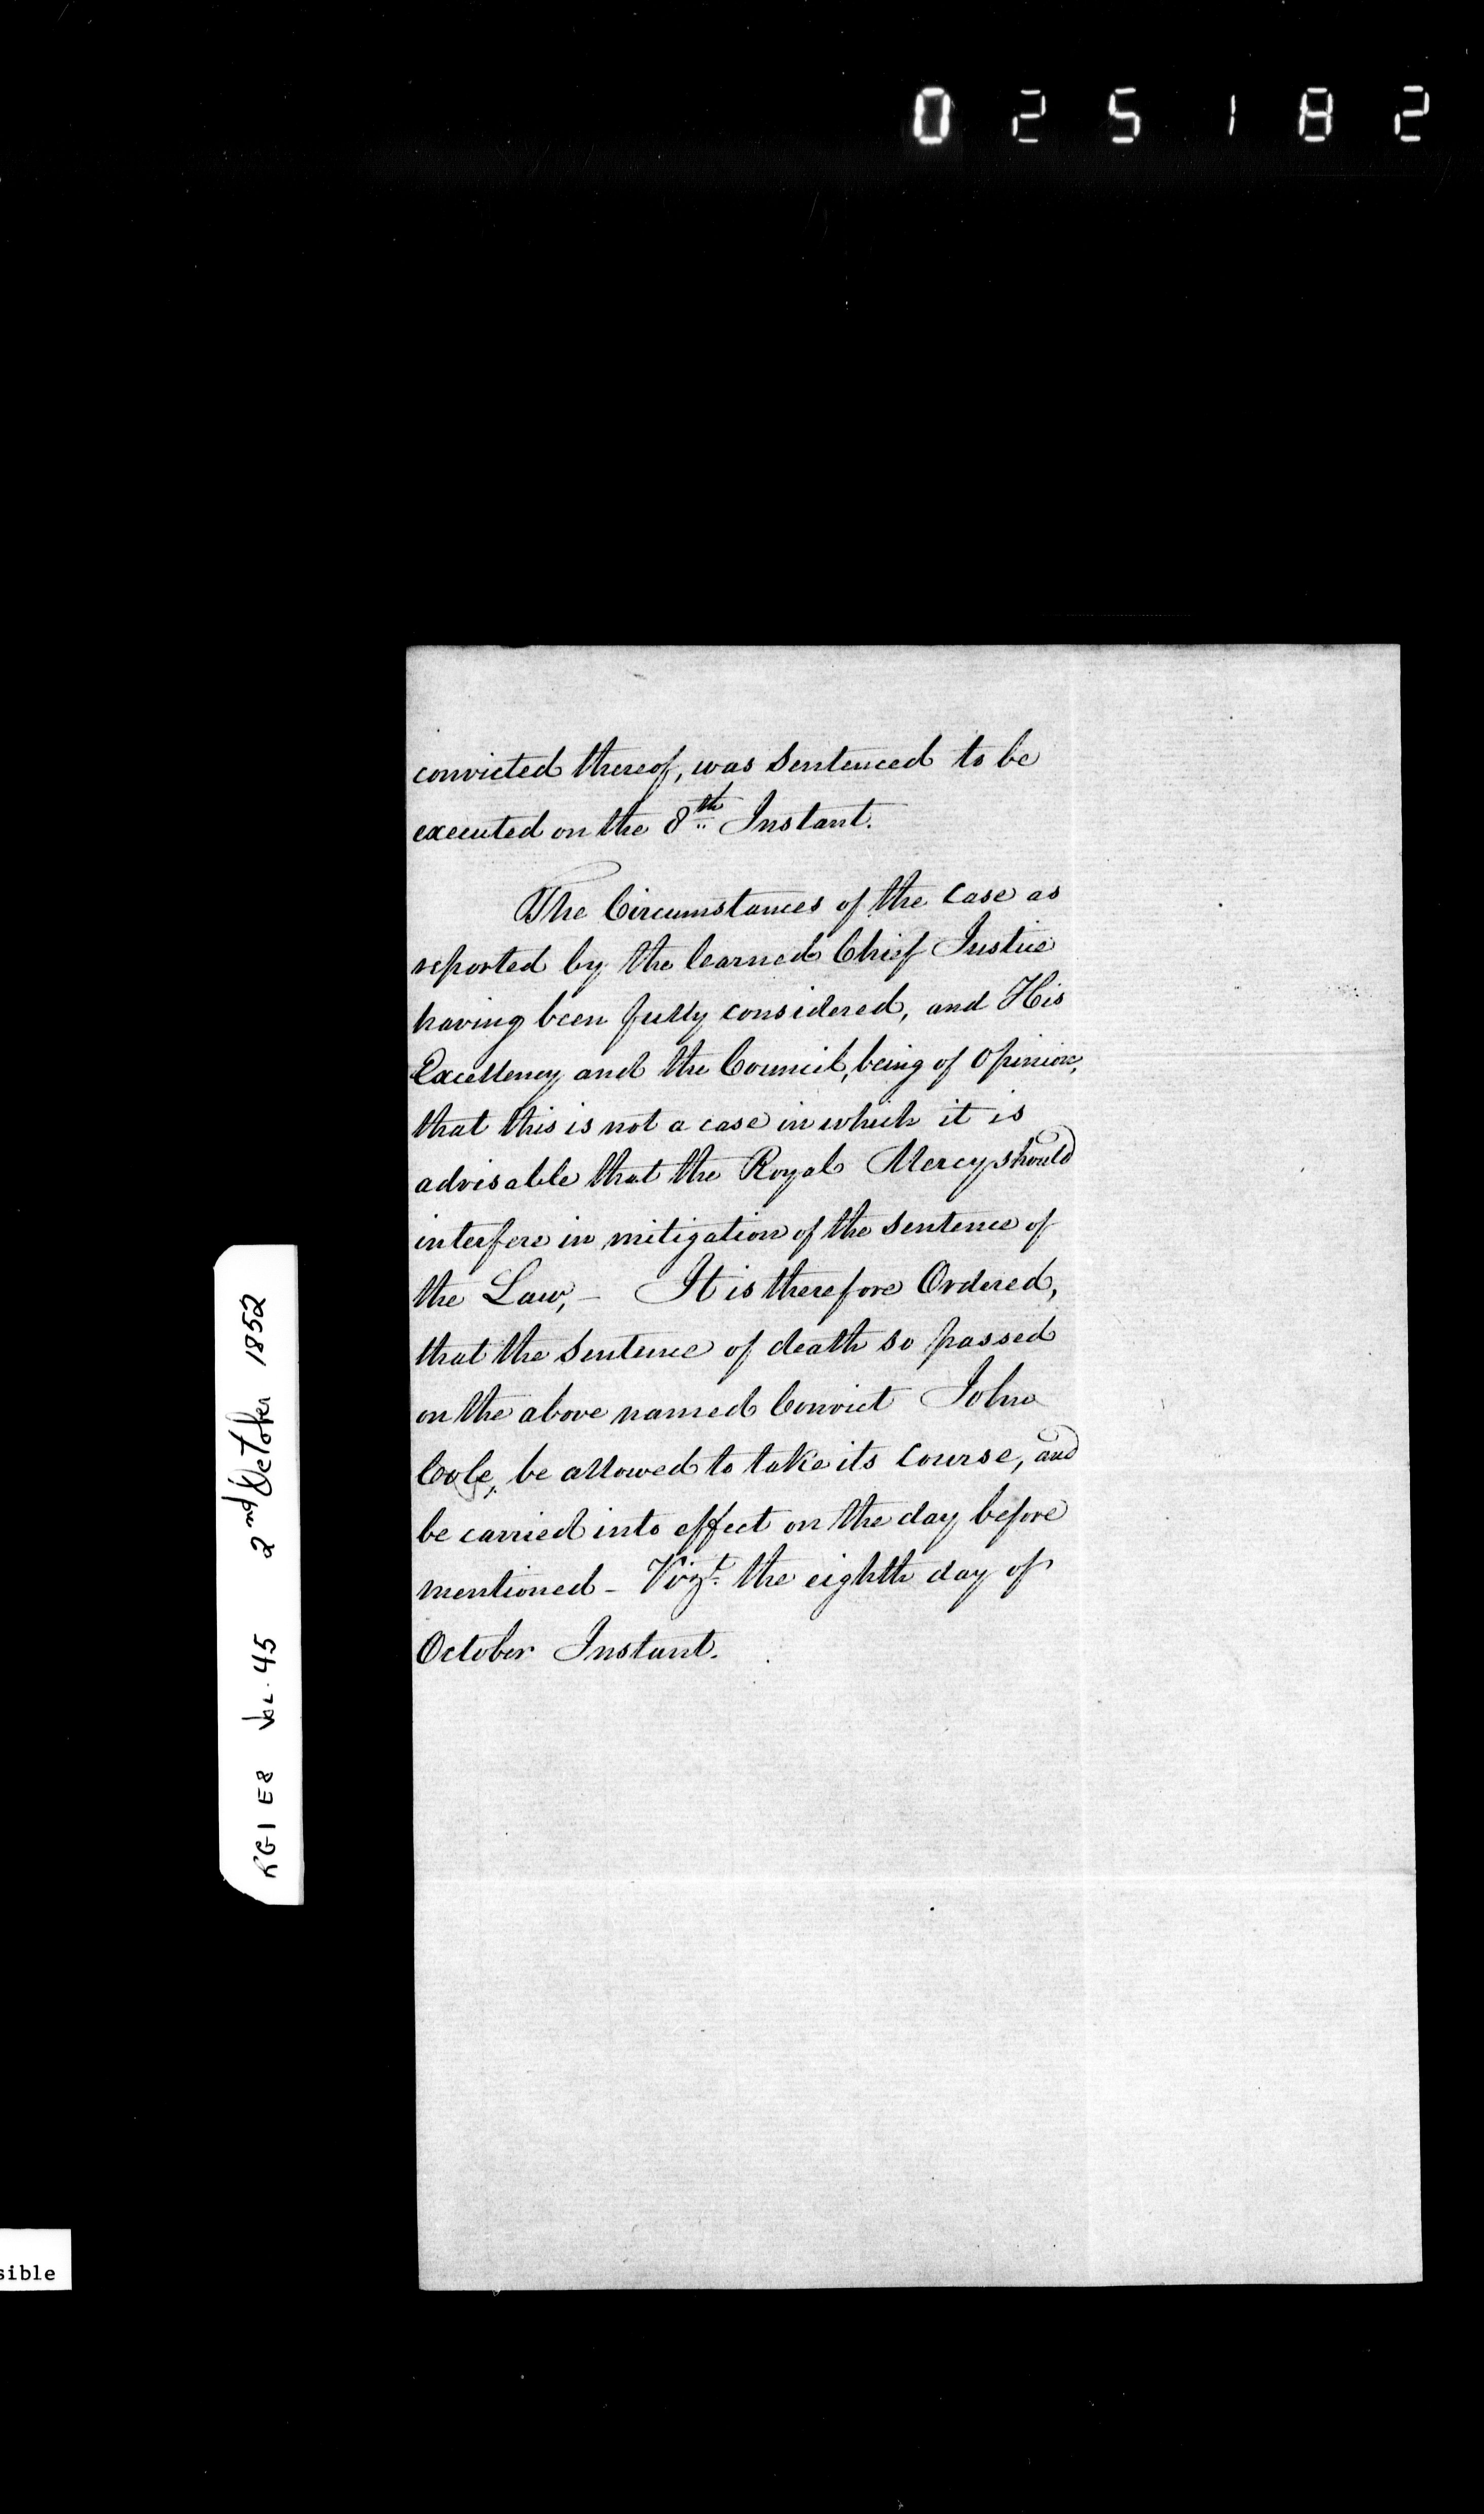 025182
convicted thereof, was sentenced to be
executed on the 8th Instant.
The Circumstances of the Case as
reported by the learned Chief Justice
having been fully considered, and His
Excellency and the Council, being of Opinion,
that this is not a case in which it is
advisable that the Royal Mercy should
interfere in mitigation of the sentence of
the Law, – It is therefore Ordered,
that the sentence of death so passed
on the above named Convict John
Cole, be allowed to take its course, and
be carried into effect on the day before
mentioned – Vizt. the eighth day of
October Instant.
RG1 E8 Vol. 45 2nd October 1852
sible